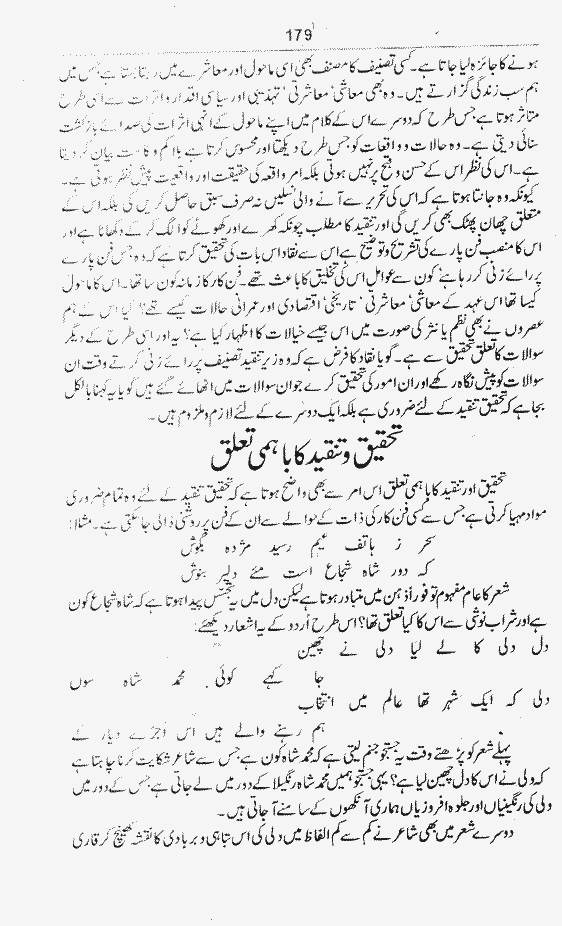 179
ہونے کا جائزہ لیا جاتا ہے۔ کسی تصنیف کا مصنف بھی اسی ماحول اور معاشرے میں رہتا بستا ہے جس میں
ہم سب زندگی گزارتے ہیں۔ وہ بھی معاشی، معاشرتی، تہذیبی اور سیاسی اقدار و اثرات سے اسی طرح
متاثر ہوتا ہے جس طرح کہ دوسرے اس کے کلام میں اپنے ماحول کے انہی اثرات کی صدائے بازگشت
سنائی دیتی ہے۔ وہ حالات و واقعات کو جس طرح دیکھتا اور محسوس کرتا ہے بلا کم و کاست بیان کر دیتا
ہے۔ اس کی نظر اس کے حسن و قبح پر نہیں ہوتی بلکہ امر واقعہ کی حقیقت اور واقعیت پیش نظر ہوتی ہے۔
کیونکہ وہ جانتا ہوتا ہے کہ اس کی تحریر سے آنے والی نسلیں نہ صرف سبق حاصل کریں گی بلکہ اس کے
متعلق چھان پھٹک بھی کریں گی اور تنقید کا مطلب چونکہ کھرے اور کھوٹے کو الگ کر کے دکھانا ہے اور
اس کا منصب فن پارے کی تشریح و توضیح ہے اس سے نقاد اس بات کی تحقیق کرتا ہے کہ وہ جس فن پارے
پر رائے زنی کر رہا ہے، کون سے عوامل اس کی تخلیق کا باعث تھے۔ فن کار کا زمانہ کون سا تھا۔ اس کا ماحول
کیسا تھا اس عہد کے معاشی، معاشرتی، تاریخی، اقتصادی اور عمرانی حالات کیسے تھے؟ کیا اس کے ہم
عصروں نے بھی نظم یا نثر کی صورت میں اس جیسے خیالات کا اظہار کیا ہے؟ یہ اور اسی طرح کے دیگر
سوالات کا تعلق تحقیق سے ہے۔ گویا نقاد کا فرض ہے کہ وہ زیر تنقید تصنیف پر رائے زنی کرتے وقت ان
سوالات کو پیش نگاہ رکھے اور ان امور کی تحقیق کرے جو ان سوالات میں اٹھائے گئے ہیں گویا یہ کہنا بالکل
بجا ہے کہ تحقیق تنقید کے لئے ضروری ہے بلکہ ایک دوسرے کے لئے لازم و ملزوم ہیں۔
تحقیق و تنقید کا باہمی تعلق
تحقیق اور تنقید کا باہمی تعلق اس امر سے بھی واضح ہوتا ہے کہ تحقیق تنقید کے لئے وہ تمام ضروری
مواد مہیا کرتی ہے جس سے کسی فن کار کی ذات کے حوالے سے ان کے فن پر روشنی ڈالی جا سکتی ہے۔ مثلاً:
سحر ز ہاتف غیبم رسید مژدہ بگوش
کہ دور شاہ شجاع است مئے دلیر بنوش
شعر کا عام مفہوم تو فوراً ذہن میں متبادر ہوتا ہے لیکن دل میں یہ تجسس پیدا ہوتا ہے کہ شاہ شجاع کون
ہے اور شراب نوشی سے اس کا کیا تعلق تھا؟ اس طرح اُردو کے یہ اشعار دیکھئے:
دل دلی کا لے لیا دلی نے چھین
جا کہے کوئی محمد شاہ سوں
دلی کہ ایک شہر تھا عالم میں انتخاب
ہم رہنے والے ہیں اس اُجڑے دیار کے
پہلے شعر کو پڑھتے وقت یہ جستجو جنم لیتی ہے کہ محمد شاہ کون ہے جس سے شاعر شکایت کرنا چاہتا ہے
کہ دلی نے اس کا دل چھین لیا ہے؟ یہی جستجو ہمیں محمد شاہ رنگیلا کے دور میں لے جاتی ہے جس کے دور میں
دلی کی رنگینیاں اور جلوہ افروزیاں ہماری آنکھوں کے سامنے آ جاتی ہیں۔
دوسرے شعر میں بھی شاعر نے کم سے کم الفاظ میں دلی کی اس تباہی و بربادی کا نقشہ کھینچ کر قاری